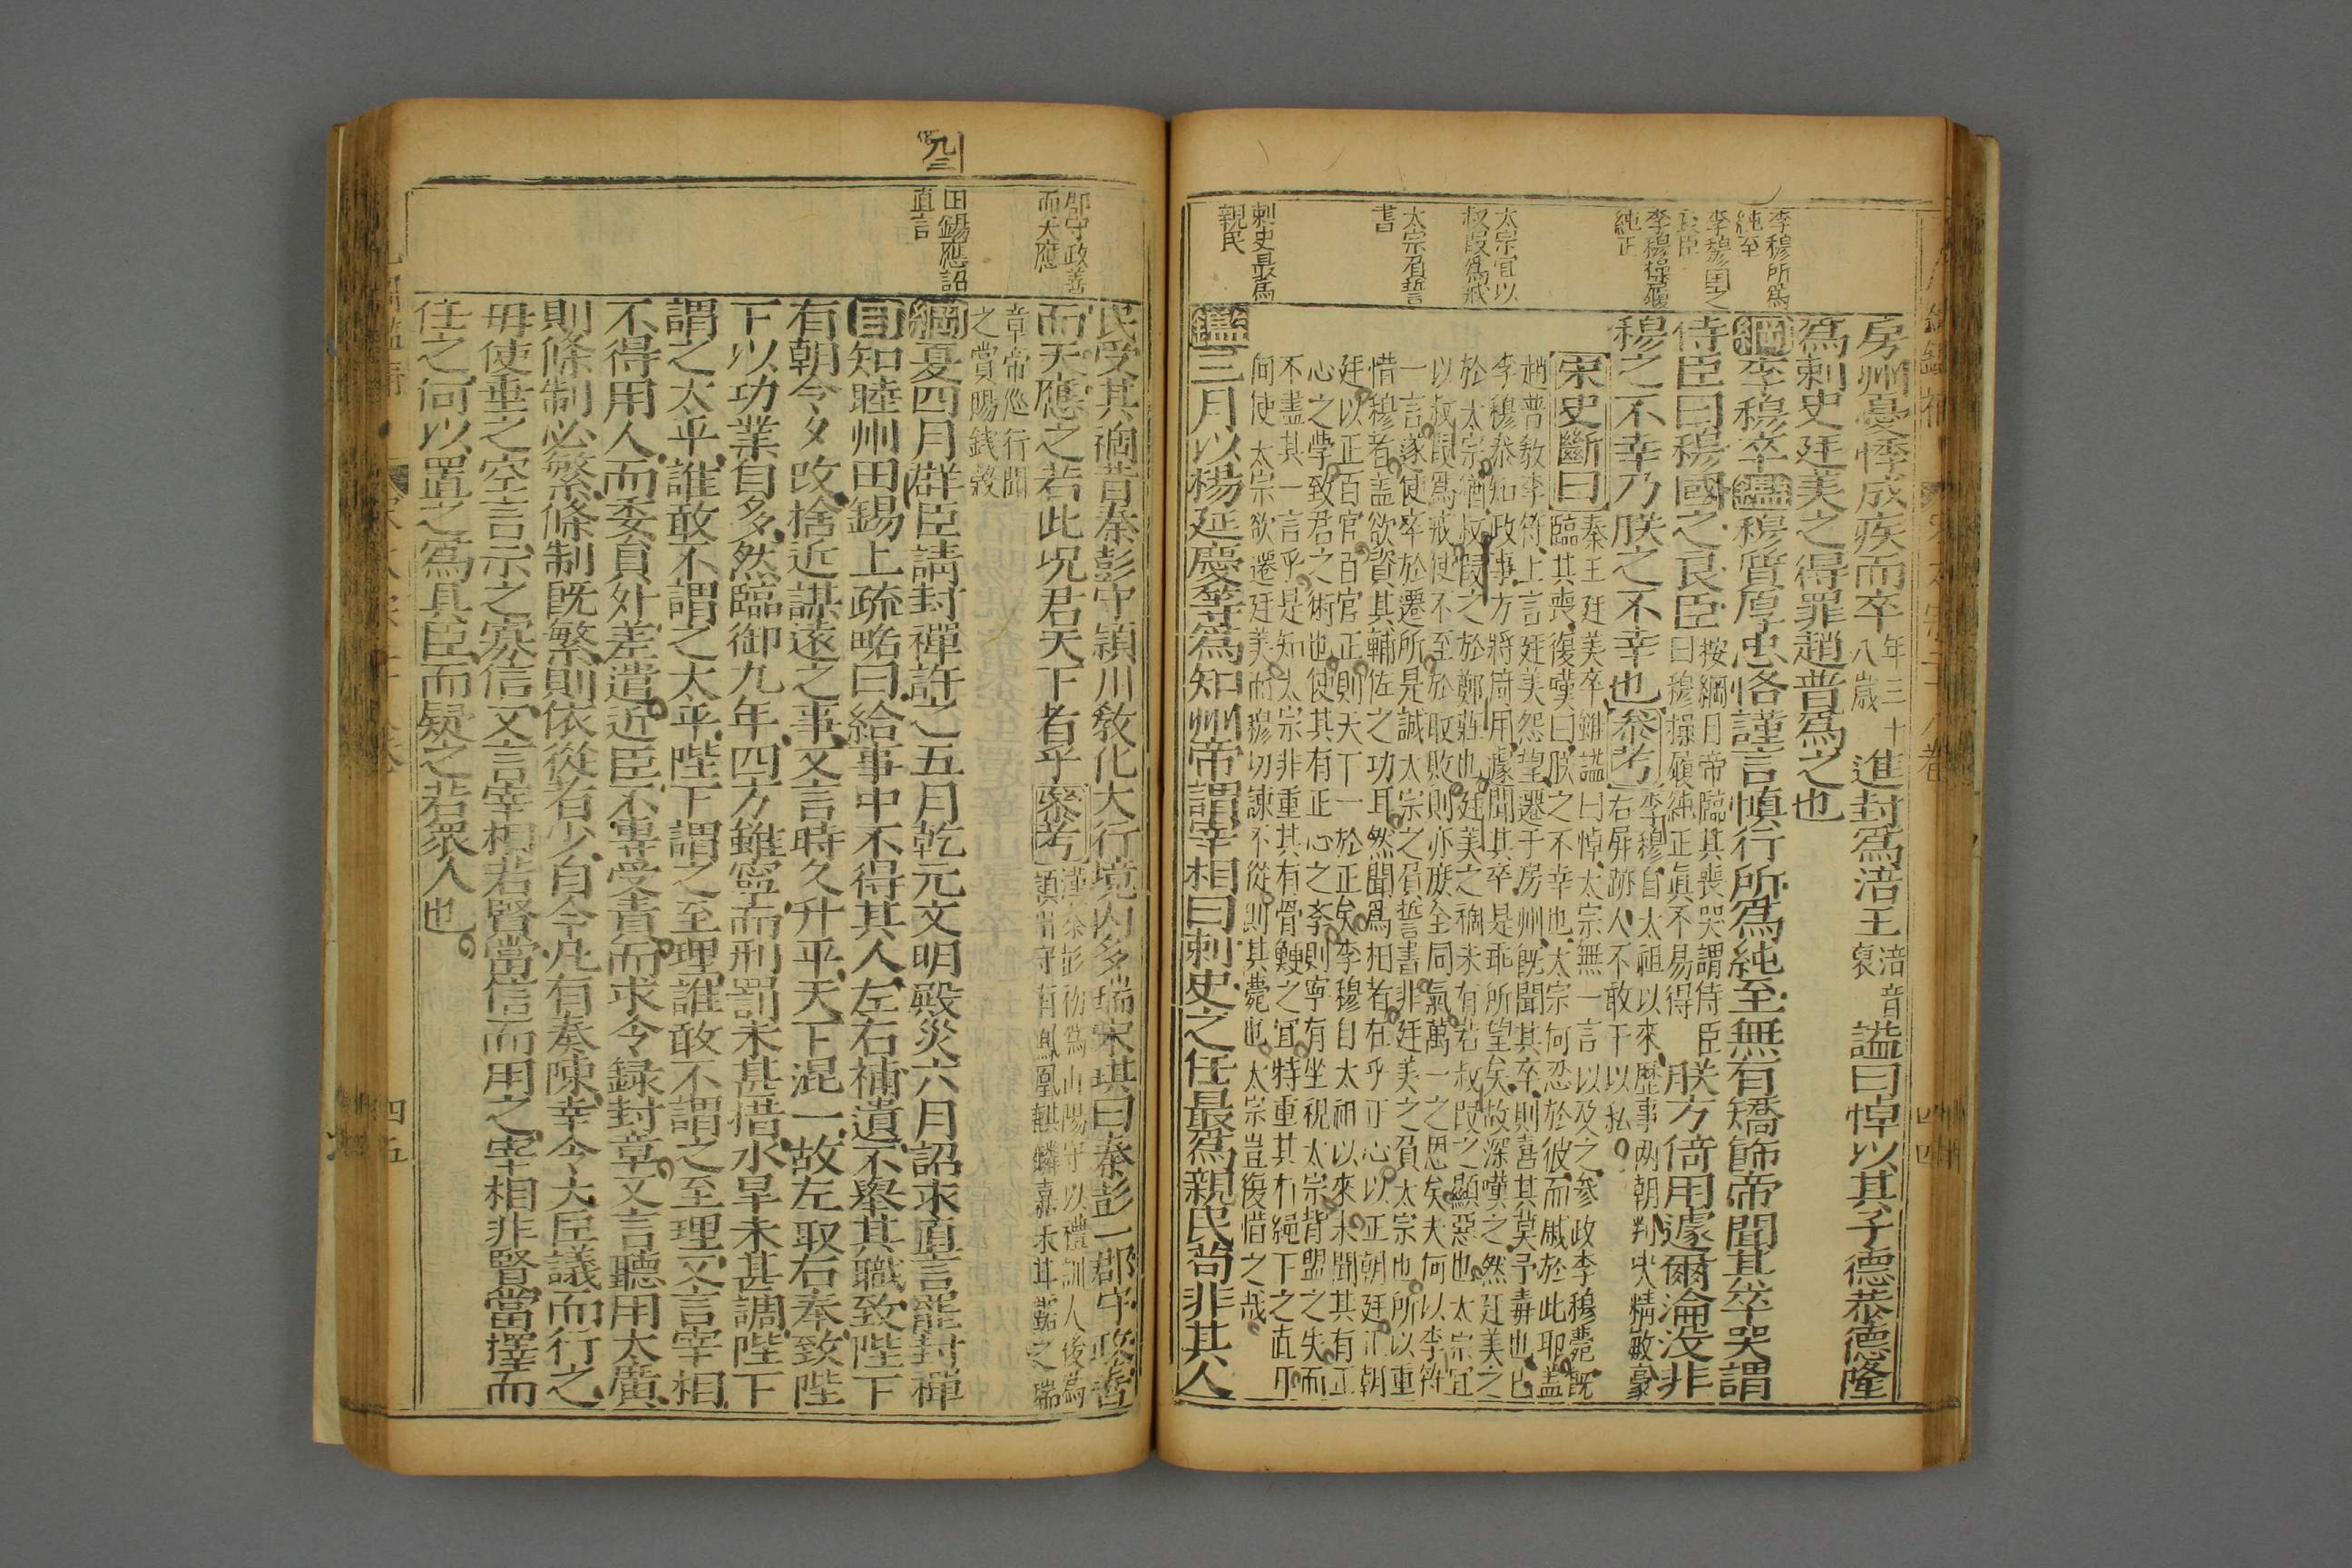 李穆所爲
純至
李穆国之
良臣
李穆操履
純正
太宗宜以
叔段爲戒
太宗負誓
書
刺史最爲
親民
房州憂悸成疾而卒年三十
八歲進封爲涪王涪音
裒謚曰悼以其子德恭德隆
爲刺史廷美之得罪趙普爲之也
綱李穆卒鑑穆質厚忠恪謹言愼行所爲純至無有矯飾帝聞其卒哭謂
侍臣曰穆國之良臣按綱目帝臨其喪哭謂侍臣
曰穆操履純正眞不易得朕方倚用遽爾淪没非
穆之不幸乃朕之不幸也叅考李穆自太祖以來歷事兩朝判史精敏豪
右屏跡人不敢干以私
宋史斷曰秦王廷美卒雖謚曰悼太宗無一言以及之參政李穆薨既
臨其喪復嘆曰朕之不幸也太宗何忍於彼而戚於此耶盖
趙普敎李符上言廷美怨望遷于房州既聞其卒則喜其莫予毒也已
李穆叅知政事方將倚用遽聞其卒是乖所望矣故深嘆之然廷美之
於太宗猶叔段之於鄭莊也廷美之禍未有若叔段之顯惡也太宗宜
以叔段爲戒使不至於取敗則亦庶全同氣萬一之恩矣夫何以李符
一言遂使卒於遷所是誠太宗之負誓書非廷美之負太宗也所以重
惜穆者盖欲資其輔佐之功耳然聞爲相者在乎正心以正朝廷正朝
廷以正百官百官正則天下一於正矣李穆自太祖以來未聞其有正
心之學致君之術也使其有正心之李則寧有坐視太宗背盟之失而
不盡其一言乎是知太宗非重其有骨鯁之宜特重其冇繩下之直
向使太宗欲遷廷美而穆切諫不從則其薨也太宗豈復惜之哉
鑑三月以楊延慶等爲知州帝謂宰相曰刺史之任最爲親民苟非其人
四四
九三
郡守政善
而天應
田錫應詔
直言
民受其禍昔秦彭守頴川敎化大行境内多瑞宋琪曰秦彭一郡守政善
而天應之若此况君天下者乎叅考漢秦彭初爲山陽守以禮訓人後爲
頴川守有鳳凰麒麟嘉禾甘露之瑞
章帝巡行聞
之賞賜錢糓
綱夏四月群臣請封禪許之五月乾元文明殿災六月詔求直言罷封禪
目知睦州田錫上疏畧曰給事中不得其人左右補遺不舉其職致陛下
有朝令夕改捨近謀遠之事又言時久升平天下混一故左取右奉致陛
下以功業自多然臨御九年四方雖寧而刑罰未甚措水旱未甚調陛下
謂之太平誰敢不謂之太平陛下謂之至理誰敢不謂之至理又言宰相
不得用人而委員外差遣近臣不專受責而求令録封章又言聽用太廣
則條制必繁條制既繁則依從者少自今凡有奏陳幸令大臣議而行之
毋使垂之空言示之寡信又言宰相若賢當信而用之宰相非賢當擇而
任之何以置之爲具臣而疑之若衆人也
四五